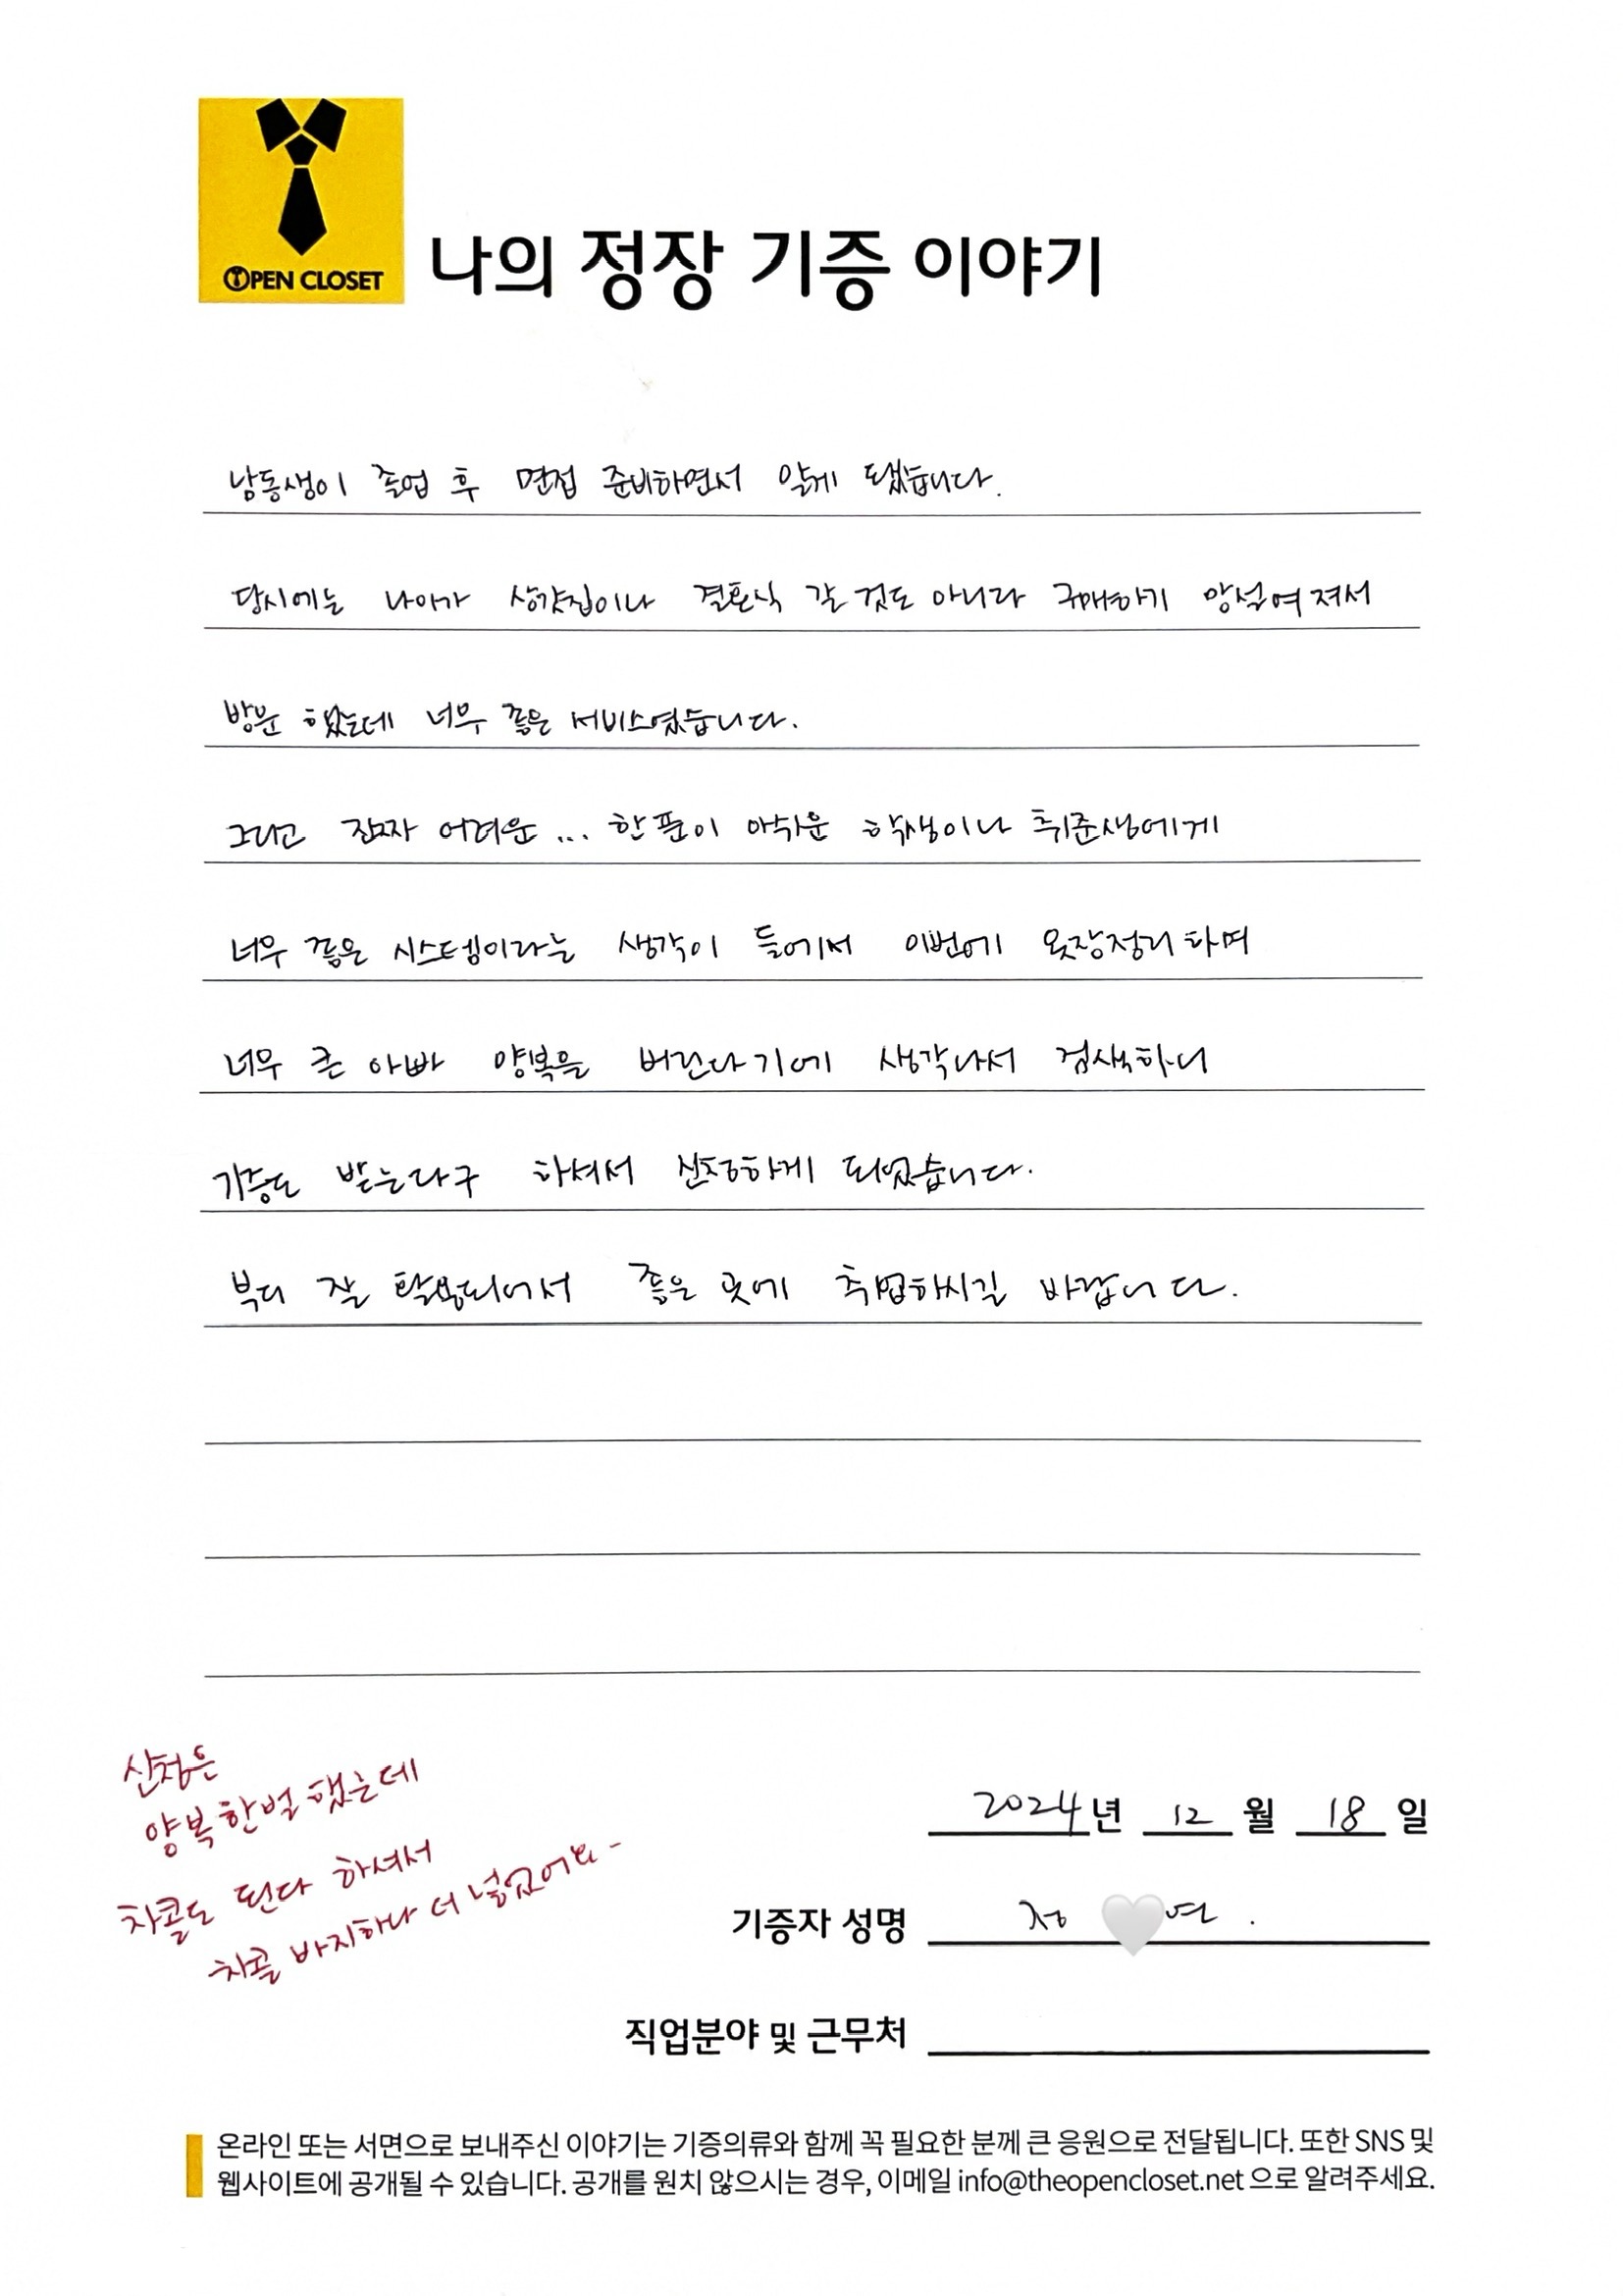 OPEN CLOSET
나의 정장 기증 이야기
남동생이 졸업 후 면접 준비하면서 알게 됐습니다.
당시에는 나이가 상갓집이나 결혼식 갈 것도 아니라 구매하기 망설여져서
방문 했는데 너무 좋은 서비스였습니다.
그리고 진짜 어려운 ... 한 푼이 아쉬운 학생이나 취준생에게
너무 좋은 시스템이라는 생각이 들어서 이번에 옷장정리하며
너무 큰 아빠 양복을 버린다기에 생각나서 검색하니
기증도 받는다구 하셔서 신청하게 되었습니다.
부디 잘 활용되어서 좋은 곳에 취업하시길 바랍니다.
신청은
양복한벌 했는데
차콜도 된다 하셔서
차콜 바지하나 더 넣었어요-
2024년 12 월 18 일
기증자 성명 정 연 .
직업분야 및 근무처
온라인 또는 서면으로 보내주신 이야기는 기증의류와 함께 꼭 필요한 분께 큰 응원으로 전달됩니다. 또한 SNS 및
웹사이트에 공개될 수 있습니다. 공개를 원치 않으시는 경우, 이메일 info@theopencloset.net 으로 알려주세요.